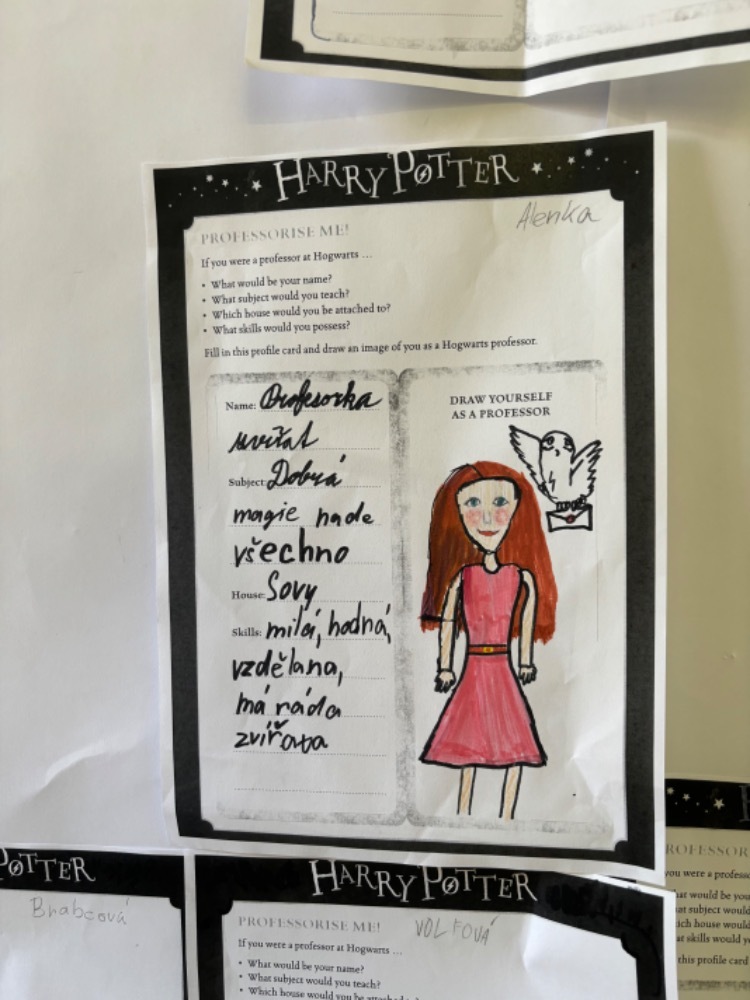 HARRY POTTER
Alenka
PROFESSORISE ME!
If you were a professor at Hogwarts ...
• What would be your name?
• What subject would you teach?
• Which house would you be attached to?
• What skills would you possess?
Fill in this profile card and draw an image of you as a Hogwarts professor.
Name: Profesorka
zvířat
Subject: Dobrá
magie nade
všechno
House: Sovy
Skills: milá, hodná,
vzdělana,
má ráda
zvířata
DRAW YOURSELF
AS A PROFESSOR
POTTER
Brabcová
HARRY POTTER
PROFESSORISE ME!
VOLFOVÁ
If you were a professor at Hogwarts ...
• What would be your name?
• What subject would you teach?
• Which house would you be